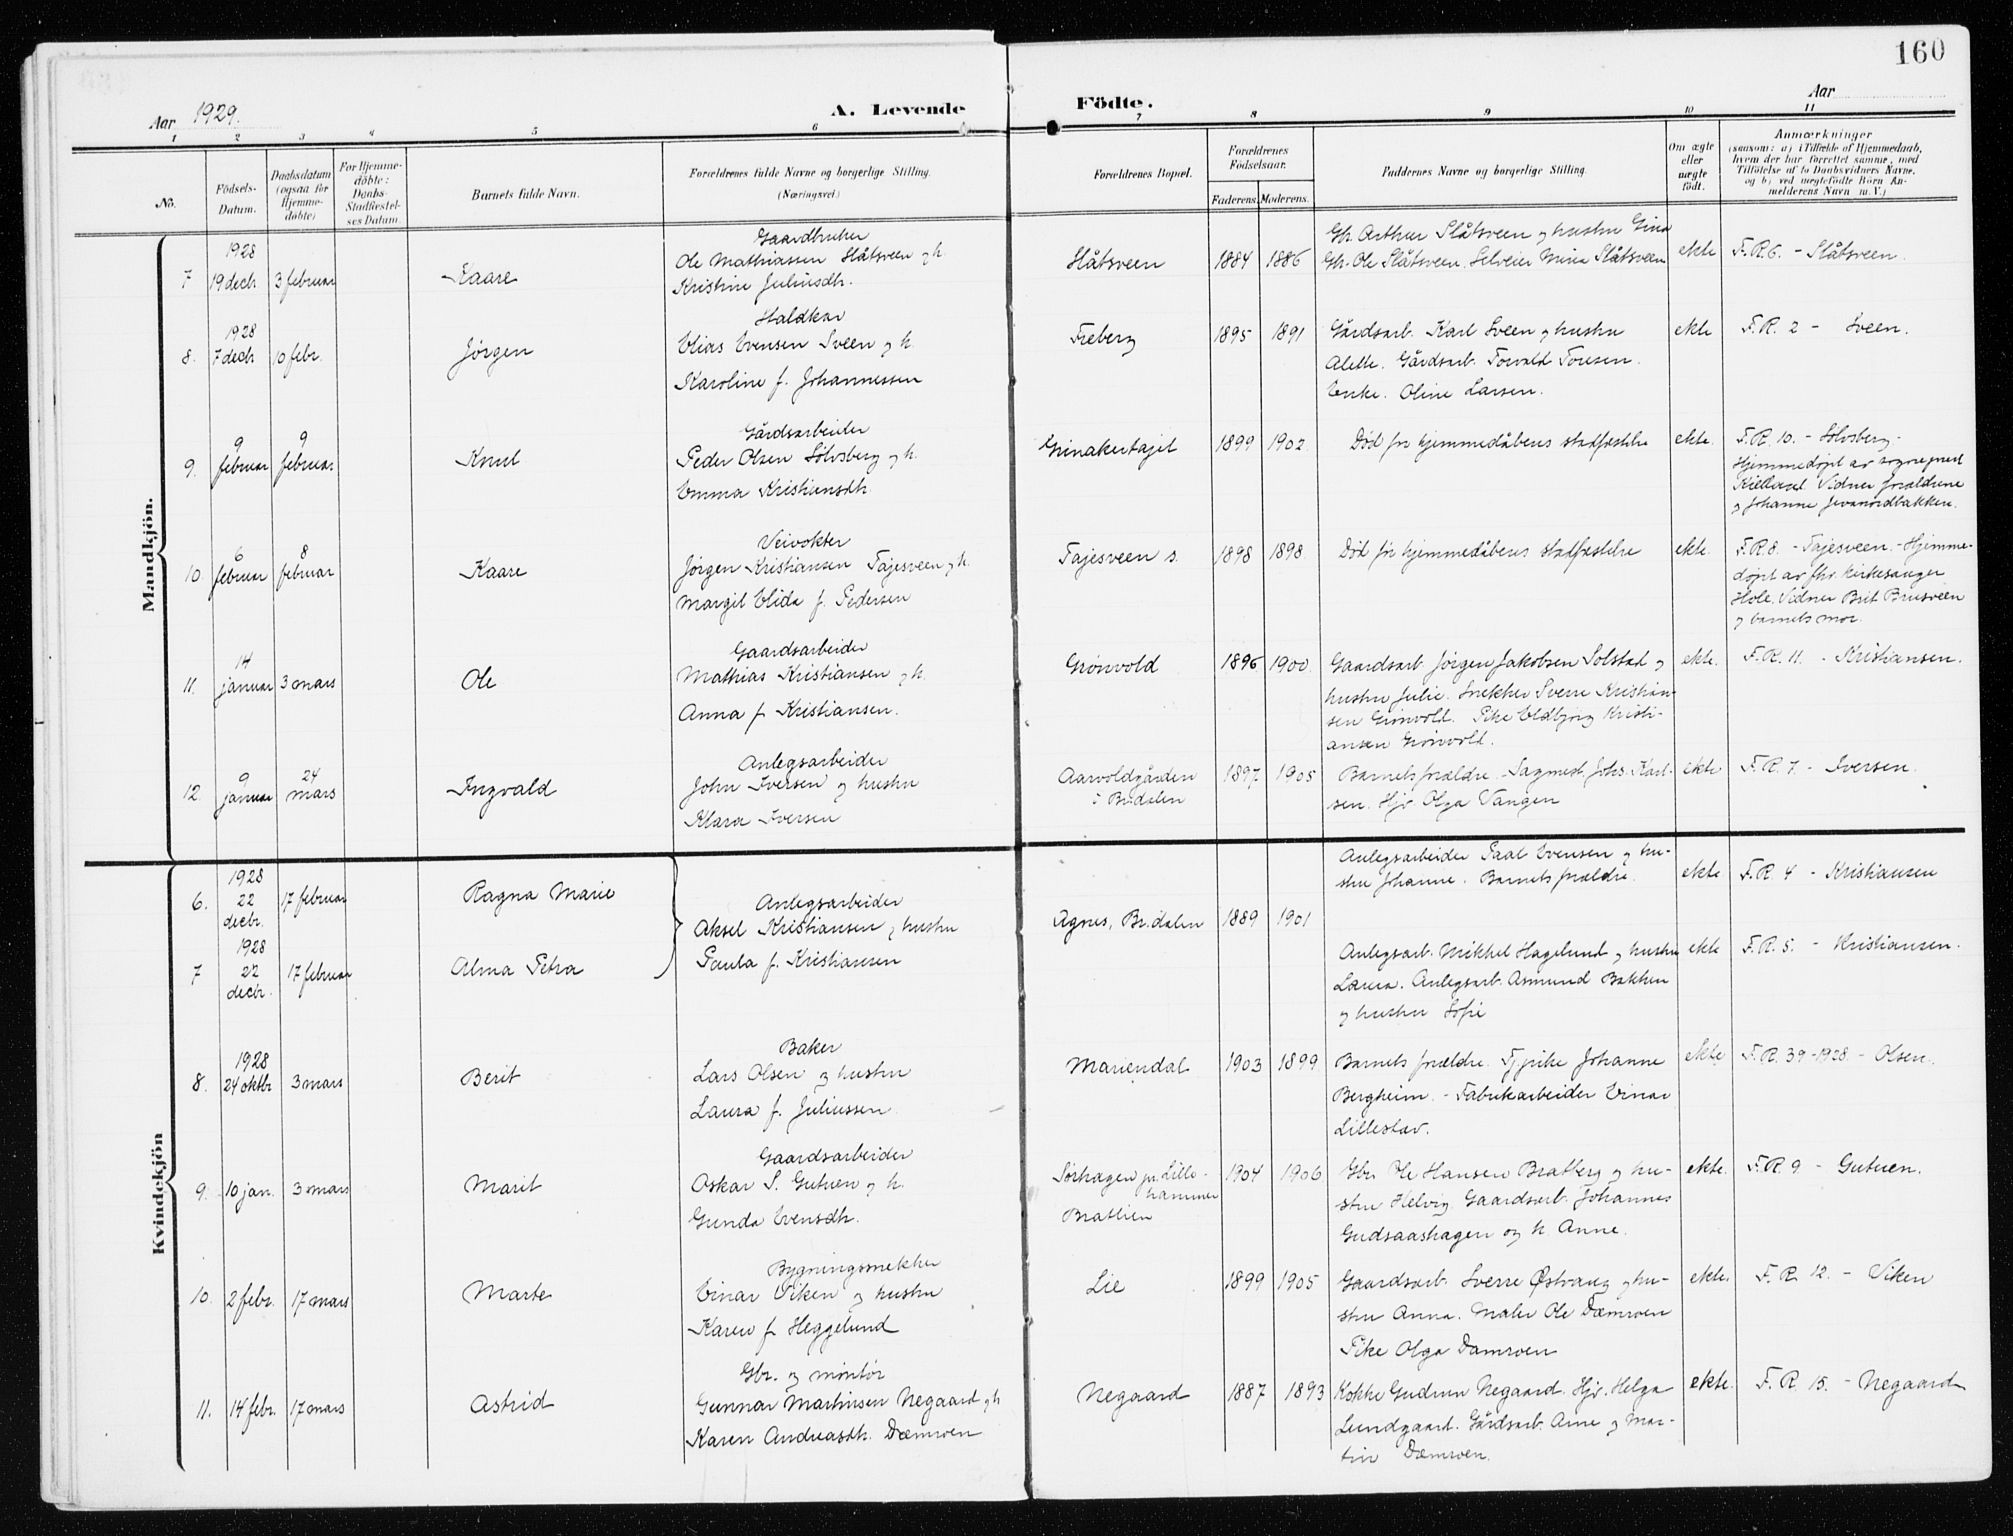 160
Aar 1929.
A. Levende Födte.
Aar
1 2 3 4 5 6 7 8 9 10 11
No.
Födsels-Datum.
Daabsdatum (ogsaa for Hjemme-døbte)
For Hjemme-döbte: Daabs-Stadfæstel-ses Datum.
Barnets fulde Navn.
Forældrenes fulde Navne og borgerlige Stilling. (Næringsvei)
Forældrenes Bopæl.
Forældrenes Födselsaar.
Faderens. Moderens.
Faddernes Navne og borgerlige Stilling.
Om ægte eller uægte födt.
Anmærkninger
(saasom: a) i Tilfælde af Hjemmedaab,
hvem der har forrettet samme, med
Tilföielse af to Daabsvidners Navne,
og b) ved uægtefödte Börn An-
melderens Navn m. V.)
Mandkjön.
7 1928 19 decb. 3 februar Kaare
Gaardbruker
Ole Mathiassen Slåtsveen og h.
Kristine Juliusdtr.
Slåtsveen 1884 1886
Gbr. Arthur Slåtsveen og hustru Gina
Gbr. Ole Slåtsveen. Selveier Mina Slåtsveen
ekte F.R. 6. - Slåtsveen.
8. 1928 7 decb 10 febr. Jørgen
Staldkar
Elias Evensen Sveen og h.
Karoline f. Johannessen
Freberg 1895 1891
Gårdsarb. Karl Sveen og hustru
Alette. Gårdsarb. Torvald Toresen.
Enke. Oline Larsen.
ekte F.R. 2 - Sveen.
9. 9 februar 9 februar Knut
Gårdsarbeider
Peder Olsen Sølvsberg og h.
Emma Kristiansdtr.
Grinakertajet 1899 1902
Død før hjemmedåbens stadfæstelse
ekte. F.R. 10. - Sølvsberg.-
Hjemmedøpt av sogneprest
Vidner forældrene
og Johanne
10. 6 februar 8 februar Kaare
Veivokter
Jørgen Kristiansen Tajesveen og h.
Margit Elida f. Pedersen
Tajesveen s. 1898 1898.
Død før hjemmedåbens stadfæstelse
ekte. F.R. 8. - Tajesveen. - Hjemme-
døpt av fhv. kirkesanger
Hole. Vidner Brit Brusveen
og barnets mor.
11. 14 januar 3 mars Ole
Gaardsarbeider
Mathias Kristiansen og h.
Anna f. Kristiansen.
Grønvold 1896 1900.
Gaardsarb. Jørgen Jakobsen Solstad og
hustru Julie. Snekker Sverre Kristian-
sen Grønvold. Pike Eldbjørg Kristi-
ansen Grønvold.
ekte. F.R. 11. - Kristiansen.
12. 9 januar 24 mars Ingvald
Anlegsarbeider
John Iversen og hustru
Klara Iversen
Aarvoldgården
i Brudalen 1897 1905
Barnets forældre. - Sagmest. Johs. Karl-
sen. Hjr. Olga Vangen
ekte F.R. 7. - Iversen.
Kvindekjön
6. 1928 22 decbr. 17 februar Ragna Marie
Anlegsarbeider
Aksel Kristiansen og hustru
Paula f. Kristiansen
Agnes, Brudalen 1889 1901
Anlegsarbeider Paal Evensen og hu-
stru Johanne. Barnets forældre.
ekte F.R. 4 - Kristiansen
7 1928 22 decbr. 17 februar Alma Petra
Anlegsarb. Mikkel Hagelund og hustru
Laura. Anlegsarb. Asmund Bakken
og hustru Sofie
ekte F.R. 5. - Kristiansen.
8. 1928 24 oktbr 3 mars Berit
Baker
Lars Olsen og hustru
Laura f. Juliussen
Mariendal 1903 1899
Barnets forældre. Tj.pike Johanne
Bergheim. - Fabrikarbeider Einar
Lillestav.
ekte F.R. 39-1928 - Olsen.
9. 10 jan. 3 mars Marit
Gaardsarbeider
Oskar S. Gutuen og h.
Gunda Evensdtr.
Sørhagen pr. Lille-
hammer
Bratlien 1904 1906
Gbr. Ole Hansen Bratberg og hu-
stru Helvig. Gaardsarb. Johannes
Gudsaashagen og h. Anne.
ekte. F.R. 9 - Gutuen.
10. 2 febr. 17 mars Marte
Bygningssnekker
Einar Viken og hustru
Karen f. Heggelund
Lie 1899 1905
Gaardsarb. Sverre Østvang og hu-
stru Anna. Maler Ole Dæmroen
Pike Olga Damroen
ekte. F.R. 12. - Viken
11. 14 febr. 17 mars Astrid
Gbr. og montør
Gunnar Martinsen Negaard og h
Karen Andreasdtr. Dæmroen
Negaard 1887 1893
Kokke Gudrun Negaard. Hjr. Helga
Lundgaard. Gårdsarb. Arne og Mar-
tin Dæmroen.
ekte. F.R. 15. - Negaard